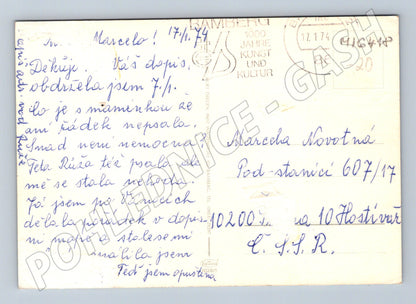 Marcelo! 17/1.74
Děkuji. Váš dopis
obdržela jsem 7/1.
Co je s maminkou že
ani řádek nepsala.
Snad není nemocná
Teta Růža též psala
mě se stala nehoda.
Já jsem po Vánocích
dělala pořádek v dopis
jsem
Teď jsem opuštěna
BAMBERG
1000
JAHRE
KUNST
UND
KULTUR
17.1.74
20
M16418
Marcela Novotná
Pod stanicí 607/17
10200 10 Hostivař
Č.S.R.
POHLEDNICE - GASH